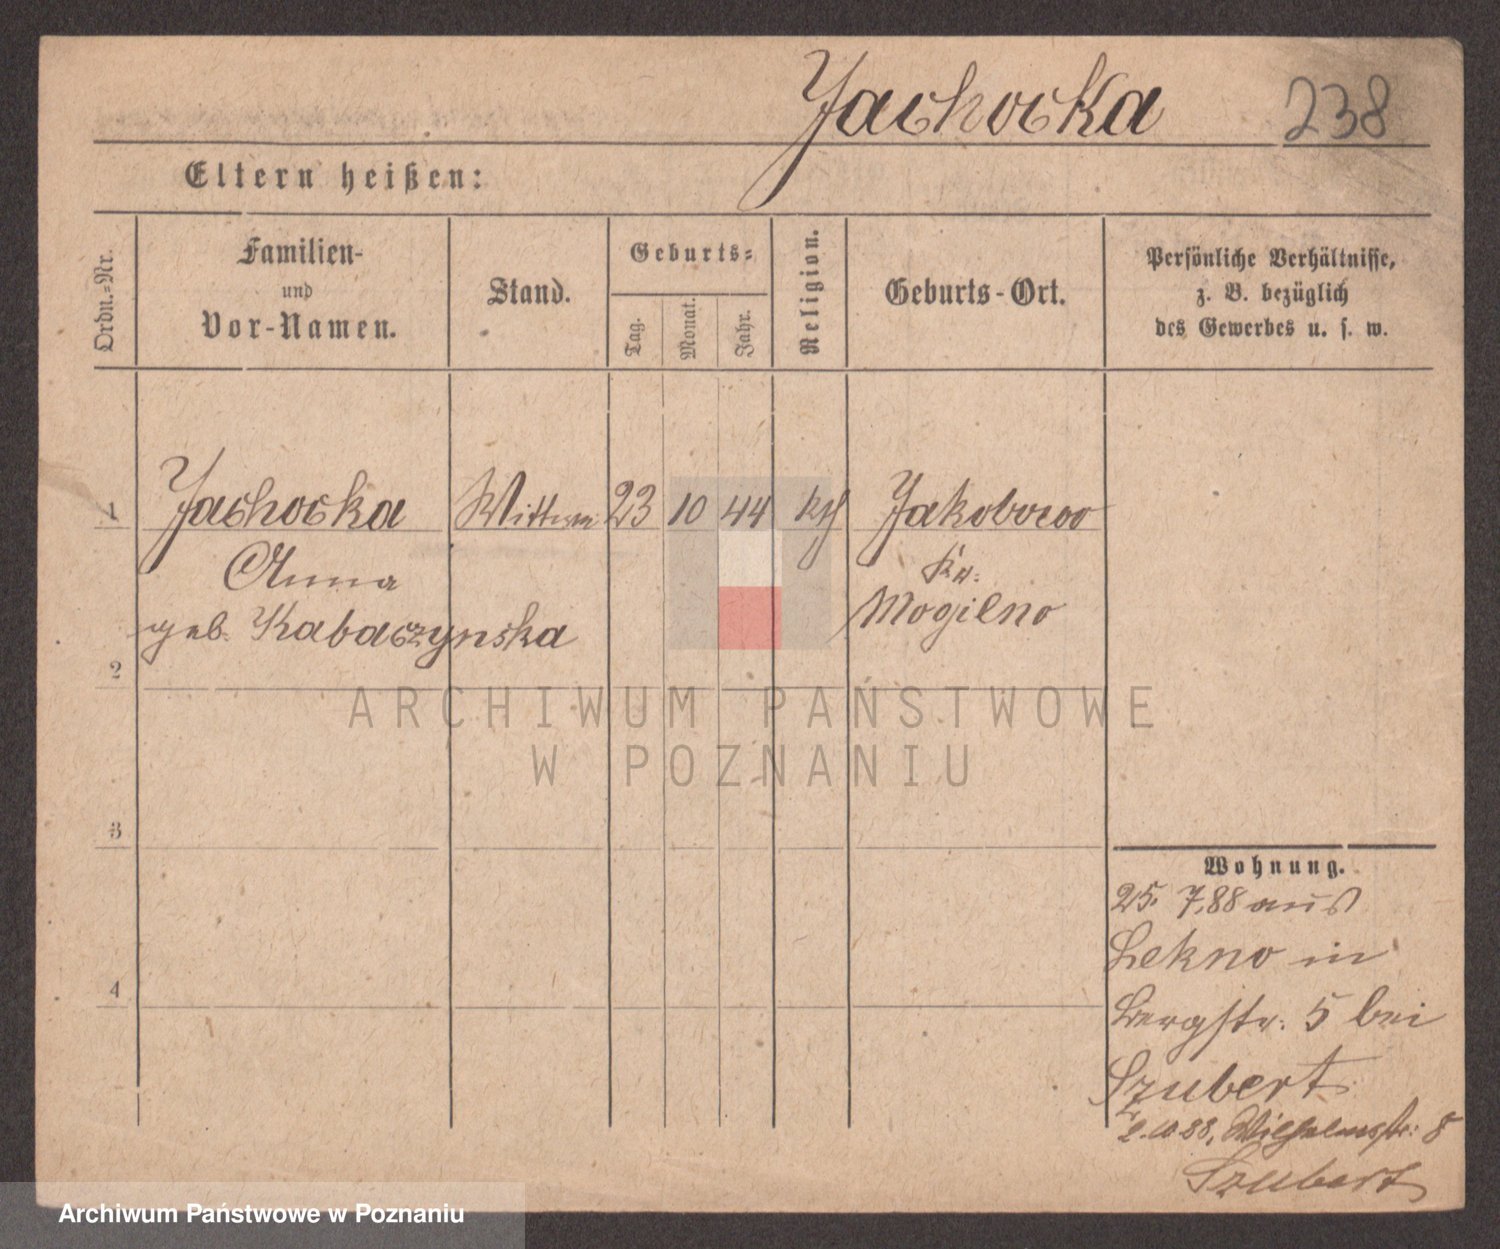 Jachocka 238
Eltern heißen:
Ordn.-Nr.
Familien-
und
Vor-Namen.
Stand.
Geburts-
Tag.
Monat.
Jahr.
Religion.
Geburts-Ort.
Persönliche Verhältnisse,
z. B. bezüglich
des Gewerbes u. s. w.
1 Jachocka Wittwe 23 10 44 kth Jakobowo
Anna Kr.
geb. Kabaczynska Mogilno
2
3
4
ARCHIWUM PAŃSTWOWE
W POZNANIU
Wohnung.
25. 7.88 aus
Lekno in
Bergstr. 5 bei
Szubert
2.10.88, Wilhelmstr: 8
Szubert
Archiwum Państwowe w Poznaniu